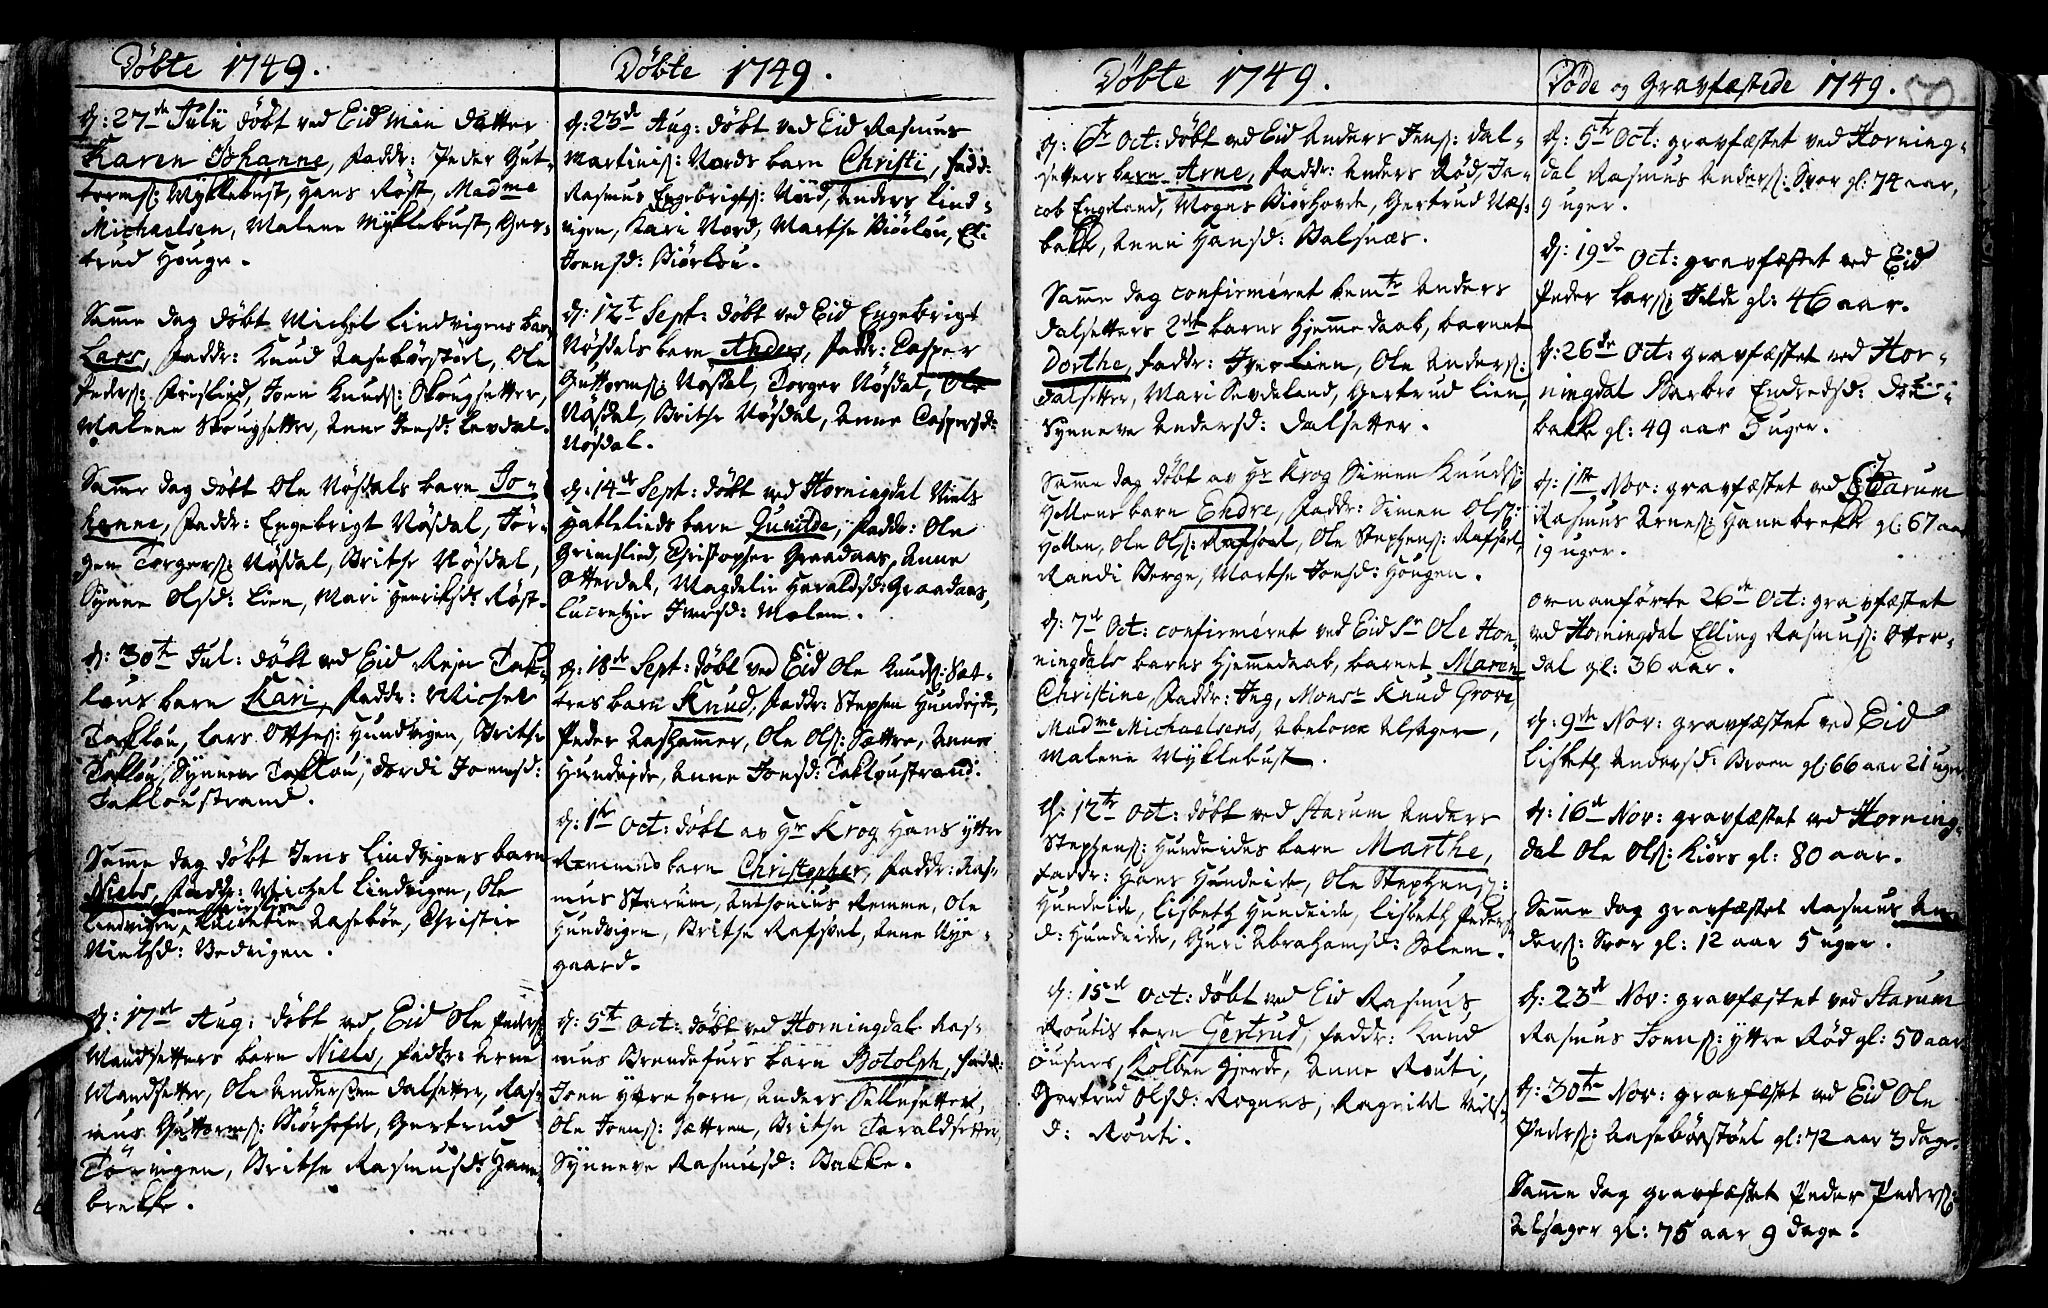 Döbte 1749.
d: 27de Julii döbt ved Eid min datter
Karen Johanne, Faddr: Peder Gut-
torms: Myklebust, Hans Röst, Madme
Michaelsen, Malene Myklebust, Ger-
trud Houge.
Samme dag döbt Michel Lindvigens barn
Lars, Faddr: Knud Aasebörstöel, Ole
Peders: Frislied, Joen Knuds: Skougsetter,
Malene Skougsetter, Anne Jensd: Levdal.
Samme dag döbt Ole Nösdals barn Jo-
hanne, Faddr: Engebrigt Nösdal, Jör-
gen Torgers: Nösdal, Brithe Nösdal,
Synne Olsd: Lien, Mari Henriksd: Röst.
d: 30te Jul: döbt ved Eid Reje Tak-
lous barn Kari, Faddr: Michel
Taklou, Lars Otthes: Hundvigen, Brithe
Taklou, Synneve Taklou, Dordi Joensd:
Takloustrand.
Samme dag döbt Jens Lindvigens barn
Niels, Faddr: Michel Lindvigen, Ole
Lindvigen, Aasebön, Christie
Nielsd: Nedvigen.
d: 17de Aug: döbt ved Eid Ole Peders:
Mandsetters barn Niels, Fadr: Arne
Mandsetter, Ole Andersen Dalsetter, Ras-
mus Guttorms: Biörhofde, Gertrud
Törvigen, Brithe Rasmusd: Hane-
brekke.
Döbte 1749.
d: 23de Aug: döbt ved Eid Rasmus
Martinis: Nords barn Christi, Fadd:
Rasmus Engebrigts: Nord, Anders Lind-
vigen, Kari Nord, Marthe Biörlou, Eli
Joensd: Biörlou.
d: 12te Sept: döbt ved Eid Engebrigt
Nösdals barn Anders, Faddr: Casper
Guttorms: Nosdal, Torger Nösdal, Ole
Nösdal, Brithe Nösdal, Anne Caspersd:
Nösdal.
d: 14de Sept: döbt ved Horningdal Niels
Hattelieds barn Gunilde, Faddr: Ole
Grimslied, Christopher Graadaas, Anne
Otterdal, Magdelie Haraldsd: Graadaas,
Lucretzie Iversd: Molem.
d: 18de Sept: döbt ved Eid Ole Knuds: Sæt-
tres barn Knud, Faddr: Stephen Hundeide,
Peder Aashammer, Ole Ols: Sættre, Anne
Hundeide, Anne Jonsd: Takloustrand.
d: 1te Oct: döbt av Hr Krog Hans yttre
Remmens barn Christopher, Faddr: Ras-
mus Starum, Anthonius Remme, Ole
Hundvigen, Brithe Rafset, Anne Nye-
gaard.
d: 5te Oct: döbt ved Horningdal Ras-
mus Brendefurs barn Botolph, Fadd:
Joen yttre Horn, Anders Sellesetter,
Ole Joens: Sættren, Brithe Taraldsetter,
Synneve Rasmusd: Bakke.
Döbte 1749.
d: 6te Oct: döbt ved Eid Anders Jens: Dal-
setters barn Arne, Faddr: Anders Röd, Ja-
cob Engeland, Mogns Biörhovde, Gertrud Næs-
bakke, Anni Hansd: Balsnæs.
Samme dag confirméret bemte Anders
Dalsetters 2det barns Hjemmedaab, barnet
Dorthe, Faddr: Iver Lien, Ole Anders:
Dalsetter, Mari Sevdeland, Gertrud Lien,
Synneve Andersd: Dalsetter.
Samme dag döbt av Hr Krog Simen Knuds:
Hollens barn Endre, Faddr: Simen Ols:
Hollen, Ole Ols: Rafsæt, Ole Stephens: Rafsæt,
Randi Berge, Marthe Jonsd: Hougen.
d: 7de Oct: confirméret ved Eid Sr Ole Hor-
ningdals barns Hjemmedaab, barnet Maren
Christine, Faddr: Jeg, Monsr Knud Grove,
Madme Michaelsens, Abelone Alsager,
Malene Myklebust.
d: 12te Oct: döbt ved Starum Anders
Stephens: Hundeides barn Marthe,
Faddr: Hans Hundeide, Ole Stephens:
Hundeide, Lisbeth Hundeide, Lisbeth Peders-
d: Hundeide, Guri Abrahamsd: Solem.
d: 15de Oct: döbt ved Eid Rasmus
Routis barn Gertrud, Faddr: Knud
Kolben Hjerde, Anne Routi,
Gertrud Olsd: Rognes, Ragnilde Nils-
d: Routi.
Döde og Gravfæstede 1749.
d: 5te Oct: gravfæstet ved Horning-
dal Rasmus Anders: Svor gl: 74 aar,
9 uger.
d: 19de Oct: gravfæstet ved Eid
Peder Lars: Jelde gl: 46 aar.
d: 26de Oct: gravfæstet ved Hor-
ningdal Barbro Endredsd:
bakke gl: 49 aar 5 uger.
d: 1te Nov: gravfæstet ved Starum
Rasmus Arnes: Hanebrekke gl: 67 aar
19 uger.
Ovenanförte 26de Oct: gravfæstet
ved Horningdal Elling Rasmus: Otter-
dal gl: 36 aar.
d: 9de Nov: gravfæstet ved Eid
Lisbeth Andersd: Broen gl: 66 aar 21 uger
d: 16de Nov: gravfæstet ved Horning-
dal Ole Ols: Kiörs gl: 80 aar.
Samme dag gravfæstet Rasmus An-
ders: Svor gl: 12 aar 5 uger.
d: 23de Nov: gravfæstet ved Starum
Rasmus Joens: yttre Röd gl: 50 aar
d: 30te Nov: gravfæstet ved Eid Ole
Peders: Aasebörstöel gl: 72 aar 3 dage.
Samme dag gravfæstet Peder Peders:
Alsager gl: 75 aar 9 dage.